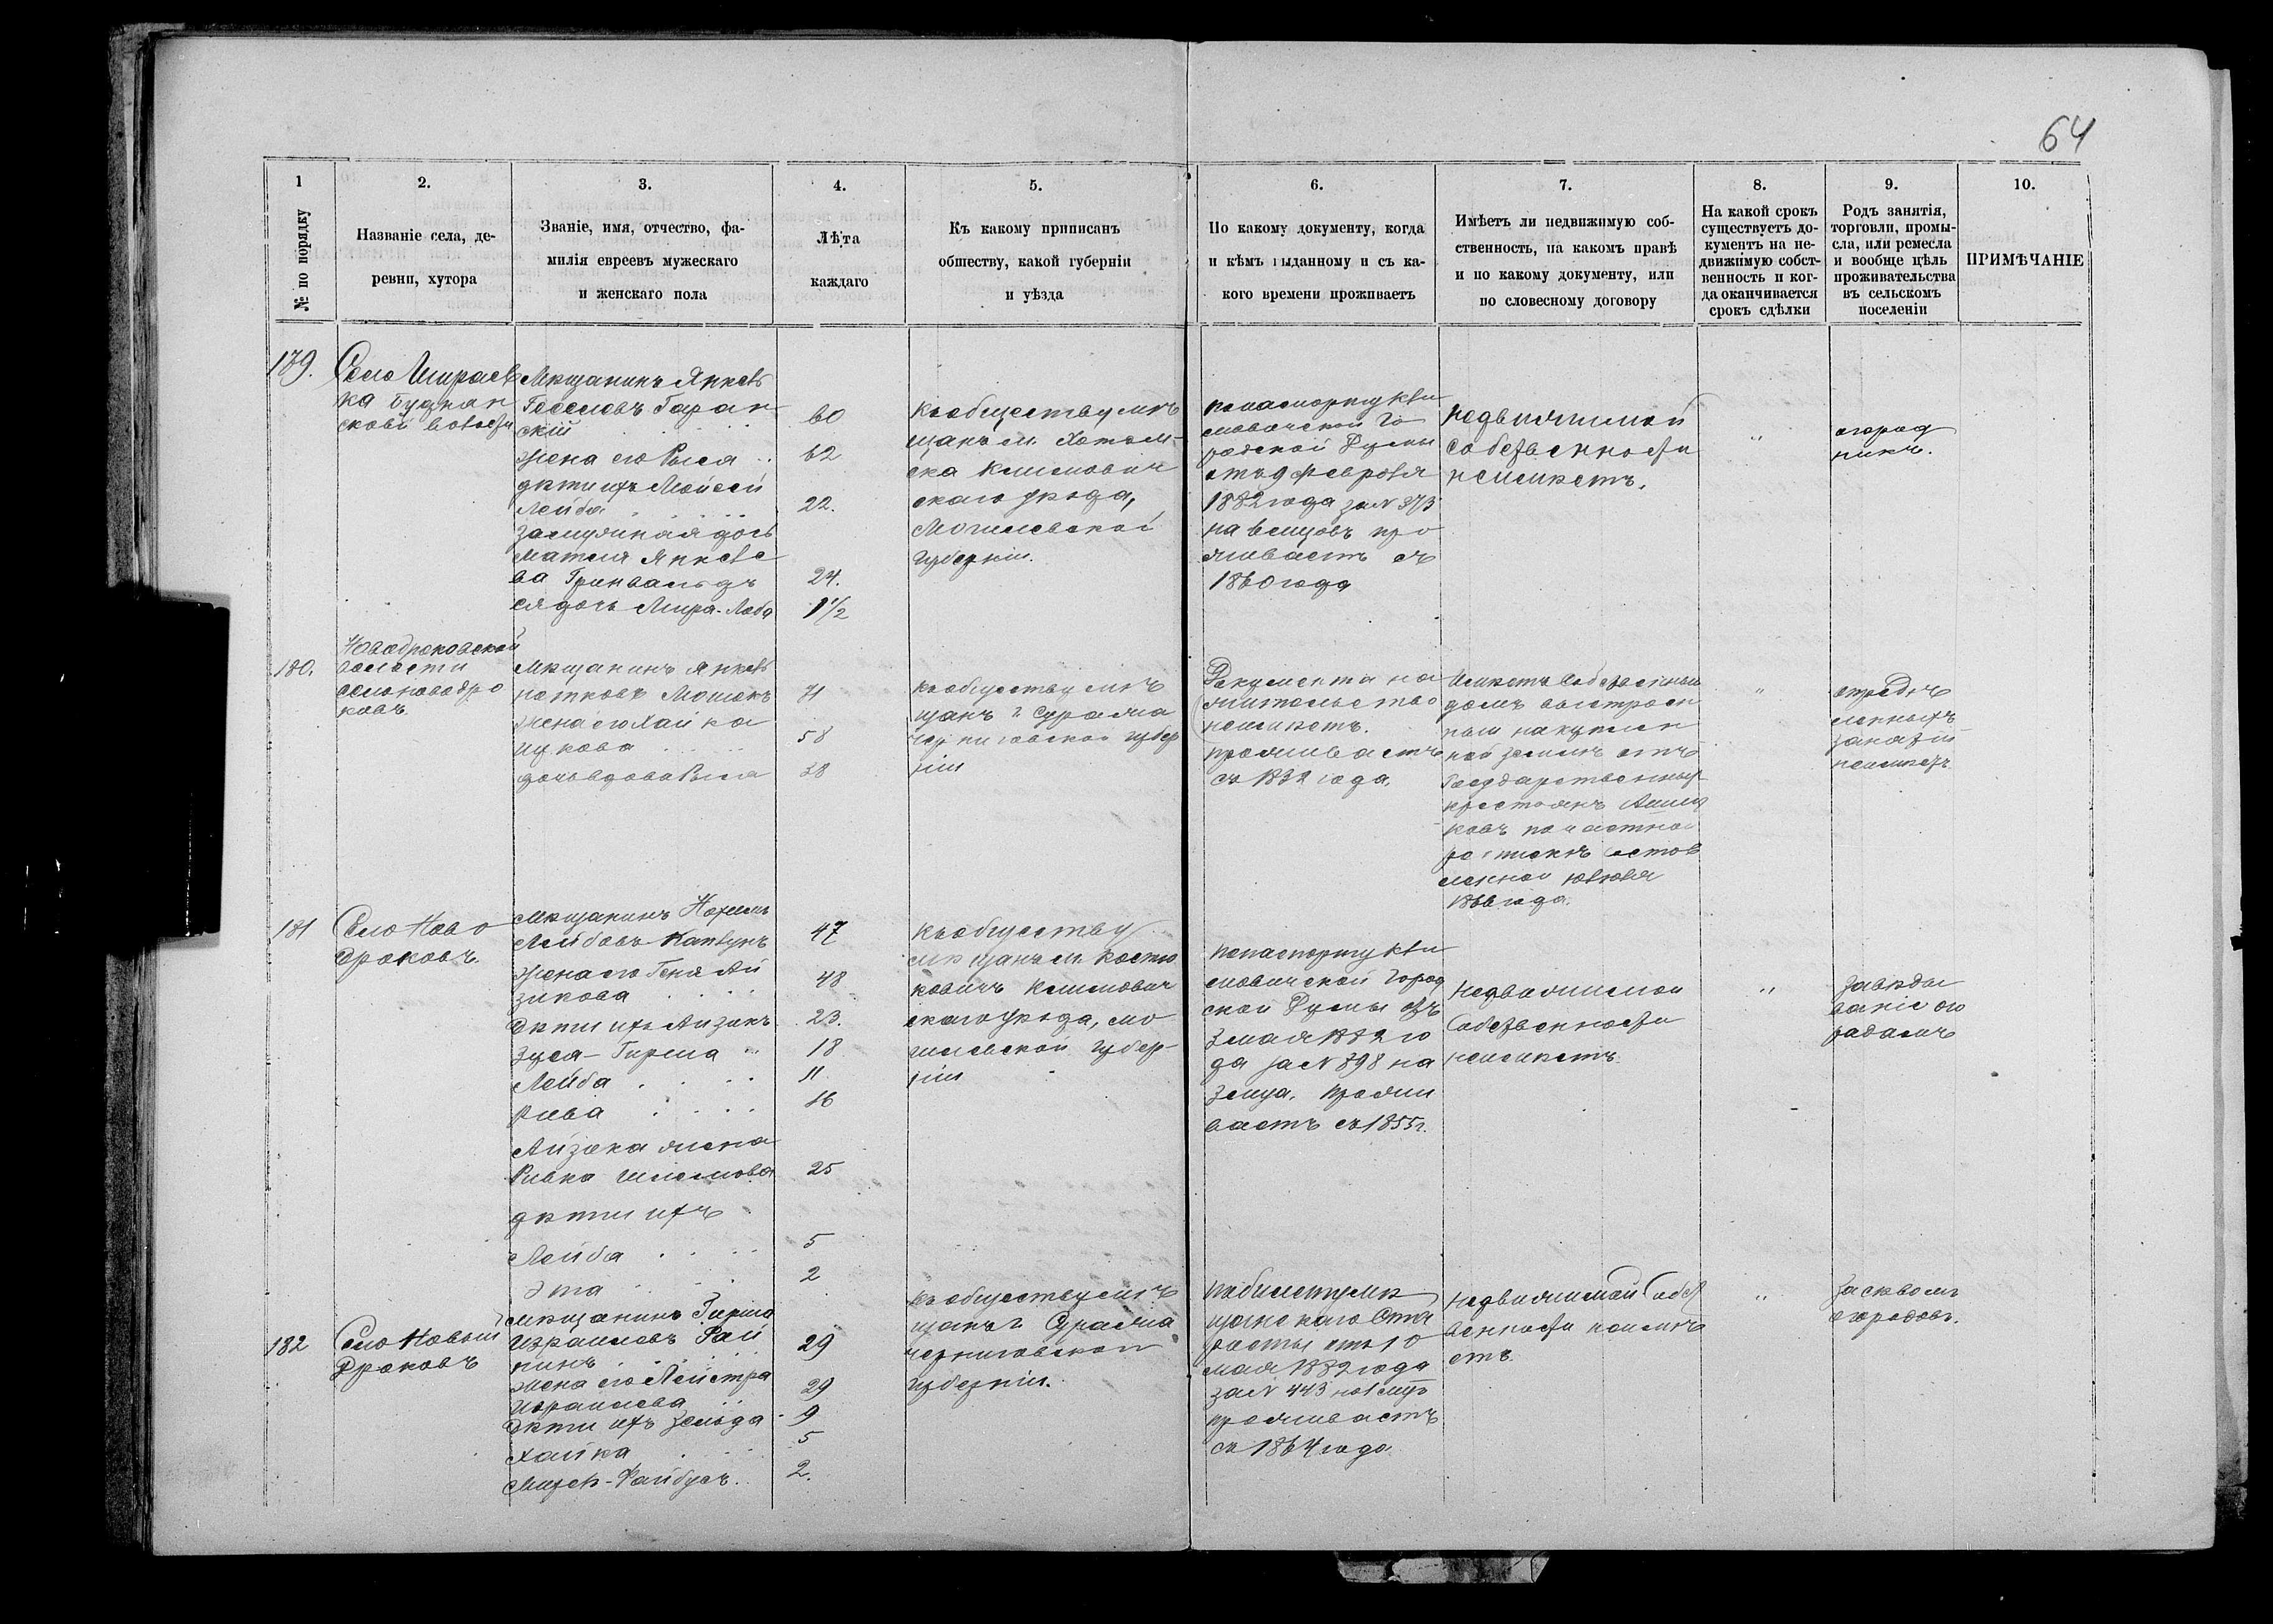 64
1
№ по порядку
2.
Названіе села, де-
ревни, хутора
3.
Званіе, имя, отчество, фа-
милія евреевъ мужескаго
и женскаго пола
4.
Лѣта
каждаго
5.
Къ какому приписанъ
обществу, какой губерніи
и уѣзда
6.
По какому документу, когда
и кѣмъ выданному и съ ка-
кого времени проживаетъ
7.
Имѣетъ ли недвижимую соб-
ственность, на какомъ правѣ
и по какому документу, или
по словесному договору
8.
На какой срокъ
существуетъ до-
кументъ на не-
движимую собст-
венность и ког-
да оканчивается
срокъ сдѣлки
9.
Родъ занятія,
торговли, промы-
сла, или ремесла
и вообще цѣль
проживательства
въ сельскомъ
поселеніи
10.
ПРИМѢЧАНІЕ
179.
Село
ка
ской волости
Мѣщанинъ Янкель
Гесселевъ Гаран
скій
жена его Рыся
дѣти ихъ Мойсей
Лейба
замужняя дочь
Матля Янкеле
ва Гринвальдъ
ея дочь Мира-Люба
60
62
22.
24.
1 1/2
Къ обществу мѣ
щанъ м. Хотим-
ска Климович
скаго уѣзда,
Могилевской
губерніи.
По паспорту Кли
мовичской Го
родской Думы
отъ 9 февраля
1882 года за № 373
на 6 мѣсцовъ про
живаетъ съ
1860 года
недвижимой
собственности
неимѣетъ.
"
огород
никъ.
180.
Новодроковской
волости
село новодро
ковъ
Мѣщанинъ Янкель
Мошокъ
жена его Хайка
Ицкова
дочь вдова Рыся
71
58
38
Къ обществу мѣ
щанъ г. Суража
черниговской губер
ніи
Документа на
жительство
неимѣетъ.
проживаетъ
съ 1832 года.
Имѣетъ собственный
домъ выстроен
ный на куплен
ной землѣ отъ
Государственныхъ
крестьянъ
ковъ по частной
роспискѣ состов
ленной
1866 года.
"
опредѣ
ленныхъ
занятій
неимѣетъ
181
Село Ново
дроковъ.
Мѣщанинъ
Лейбовъ Каплунъ
жена его Геня Ай
зикова
Дѣти ихъ Айзикъ
Зуся-Гирша
Лейба
Рива
Айзика жена
Ривка Шлемова
дѣти ихъ
Лейба
Эта
47
48
23.
18
11
16
25
5
2
Къ обществу
мѣщанъ м. Костю
ковичъ Климович
скаго уѣзда, мо
гилевской губер-
ніи
По паспорту Кли
мовичской Город
ской Думы отъ
3 мая 1882 го
да за № 898 на
3 мца. Прожи
ваетъ съ 1855 г.
Недвижимой
Собственности
неимѣетъ.
"
Завѣды
ваніе ого
родамъ
182
Село Новый
Дроковъ
Мѣщанинъ Гирша
Израилевъ Рай
кинъ
жена его
Израилева
Дѣти ихъ Зельда
Хайка
-Файбусъ.
29
29
9
5
2.
Къ обществу мѣ
щанъ г. Суража
черниговской
губерніи.
По билету мѣ
щанскаго Ста
росты отъ 10
мая 1882 года
за № 443 на 1 мцъ
проживаетъ
съ 1864 года
Недвижимой Собст
венности неимѣ
етъ
"
Засѣвомъ
огородовъ.